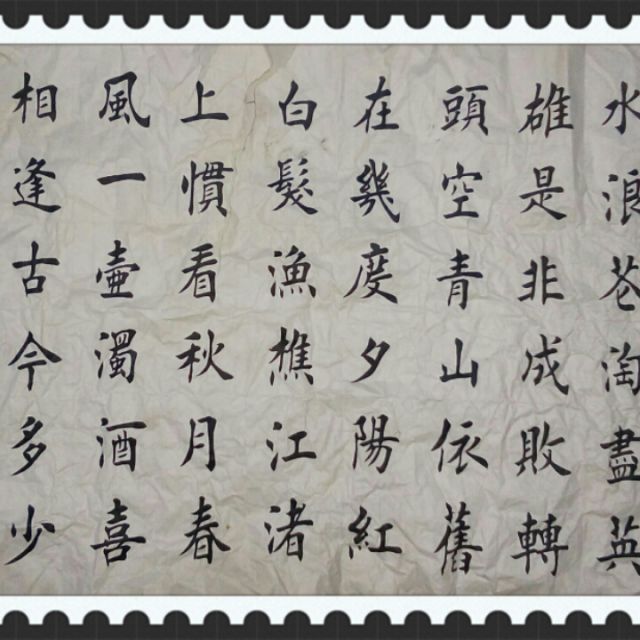 水浪花淘盡英
雄是非成敗轉
頭空青山依舊
在幾度夕陽紅
白髮漁樵江渚
上慣看秋月春
風一壺濁酒喜
相逢古今多少